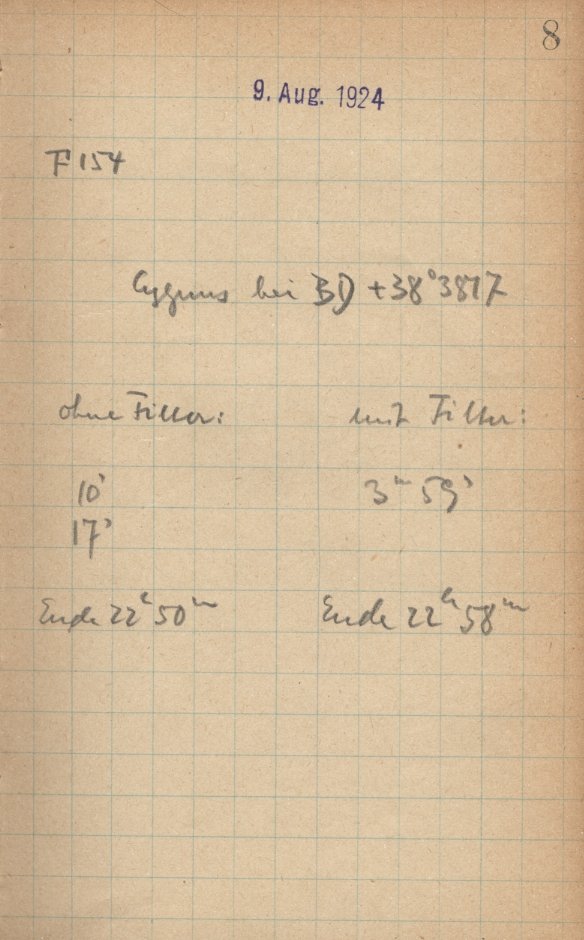 8
9. Aug. 1924
F 154
Cygnus bei BD +38°3817
ohne Filter: mit Filter:
10ˢ 3ᵐ 59ˢ
17ˢ
Ende 22ʰ 50ᵐ Ende 22ʰ 58ᵐ